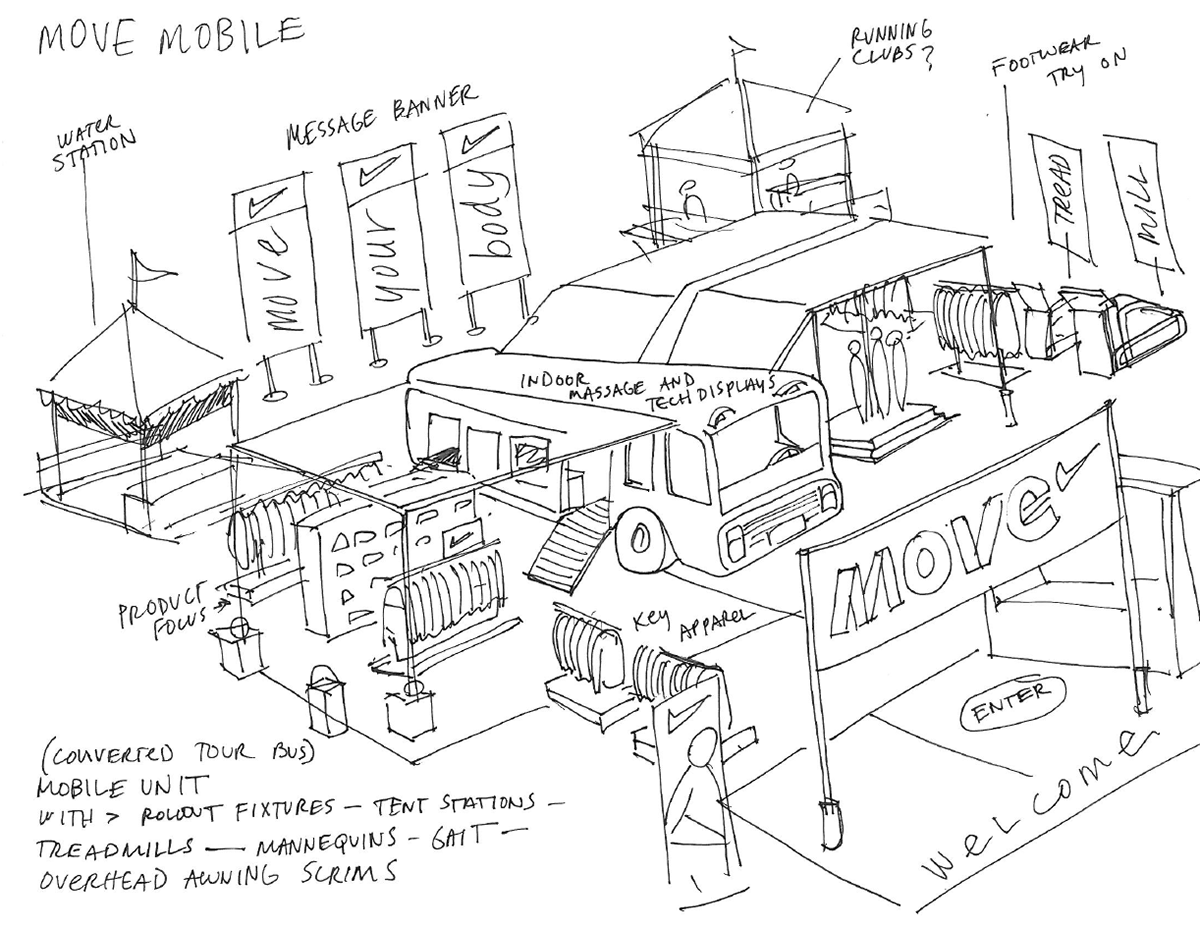 MOVE MOBILE
WATER
STATION
MESSAGE BANNER
RUNNING
CLUBS?
FOOTWEAR
TRY ON
move
your
body
TREAD
MILL
INDOOR
MASSAGE AND
TECH DISPLAYS
MOVE
PRODUCT
FOCUS
KEY APPAREL
ENTER
WELCOME
(CONVERTED TOUR BUS)
MOBILE UNIT
WITH > ROLLOUT FIXTURES - TENT STATIONS -
TREADMILLS - MANNEQUINS - GAIT -
OVERHEAD AWNING SCRIMS